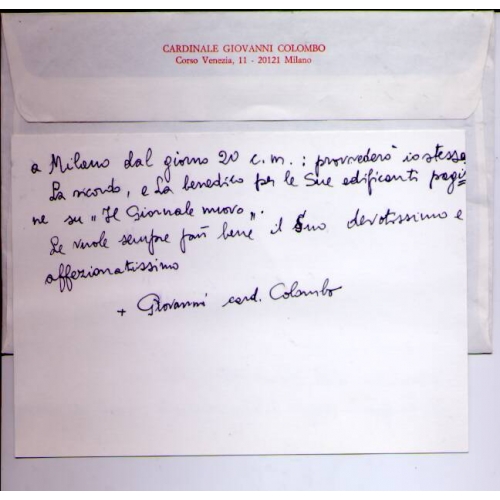 CARDINALE GIOVANNI COLOMBO
Corso Venezia, 11 - 20121 Milano
a Milano dal giorno 20 c.m.; provvederò io stesso
La ricordo, e La benedico per le Sue edificanti pagi=
ne su „Il Giornale nuovo„.
Le vuole sempre bene il Suo devotissimo e
affezionatissimo
+ Giovanni card. Colombo